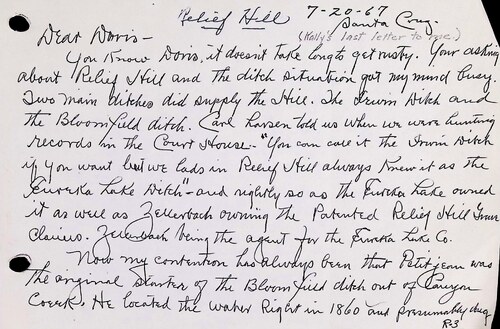 Relief Hill
7-20-67
Santa Cruz.
(Kelly's last letter to me.)
Dear Doris-
You Know Doris, it doesn't take long to get rusty. Your asking
about Relief Hill and the ditch situation got my mind busy.
Two main ditches did supply the Hill. The Irwin Ditch and
the Bloomfield ditch. Carl Larsen told us when we were hunting
records in the Court House - "You can call it the Irwin Ditch
if you want but we lads in Relief Hill always Knew it as the
Eureka Lake Ditch" - and rightly so as the Eureka Lake owned
it as well as Zellerbach owning the Patented Relief Hill
Claims. Zellerbach being the agent for the Eureka Lake Co.
Now my contention has always been that Petitjean was
the original starter of the Bloomfield ditch out of Canyon
Creek. He located the water Right in 1860 and presumably dug
R3